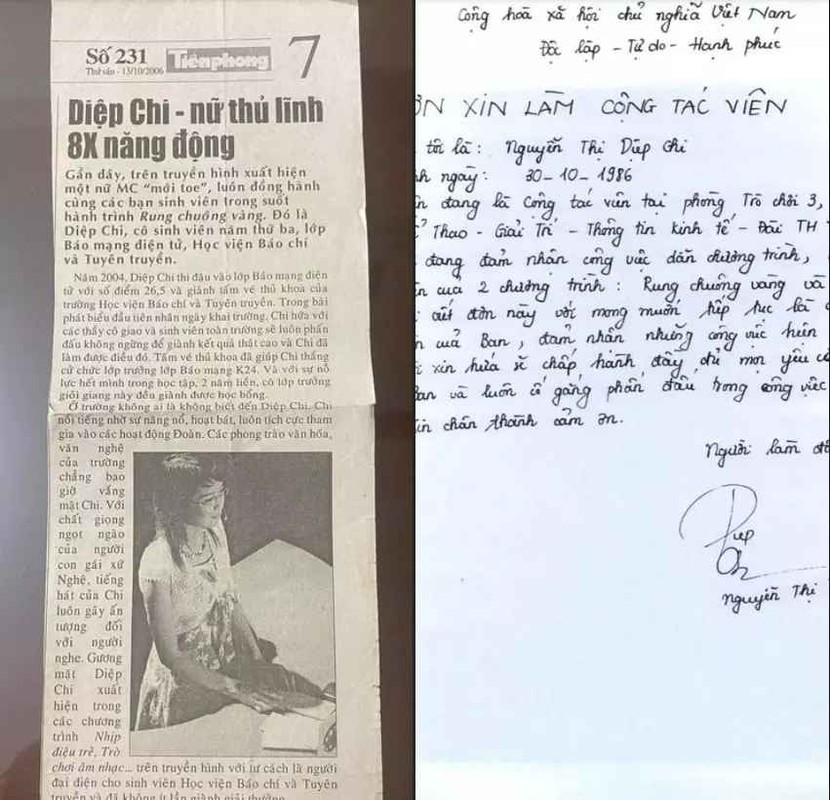 Số 231
Thứ sáu - 13/10/2006
Tiền phong
7
Diệp Chi - nữ thủ lĩnh
8X năng động
Gần đây, trên truyền hình xuất hiện
một nữ MC “mới toe”, luôn đồng hành
cùng các bạn sinh viên trong suốt
hành trình Rung chuông vàng. Đó là
Diệp Chi, cô sinh viên năm thứ ba, lớp
Báo mạng điện tử, Học viện Báo chí
và Tuyên truyền.
Năm 2004, Diệp Chi thi đậu vào lớp Báo mạng điện
tử với số điểm 26,5 và giành tấm vé thủ khoa của
trường Học viện Báo chí và Tuyên truyền. Trong bài
phát biểu đầu tiên nhân ngày khai trường, Chi hứa với
các thầy cô giáo và sinh viên toàn trường sẽ luôn phấn
đấu không ngừng để giành kết quả thật cao và Chi đã
làm được điều đó. Tấm vé thủ khoa đã giúp Chi thắng
cử chức lớp trưởng lớp Báo mạng K24. Và với sự nỗ
lực hết mình trong học tập, 2 năm liền, cô lớp trưởng
giỏi giang này đều giành được học bổng.
Ở trường không ai là không biết đến Diệp Chi. Chi
nổi tiếng nhờ sự năng nổ, hoạt bát, luôn tích cực tham
gia vào các hoạt động Đoàn. Các phong trào văn hóa,
văn nghệ
của trường
chẳng bao
giờ vắng
mặt Chi. Với
chất giọng
ngọt ngào
của người
con gái xứ
Nghệ, tiếng
hát của Chi
luôn gây ấn
tượng đối
với người
nghe. Gương
mặt Diệp
Chi xuất
hiện trong
các chương
trình Nhịp
điệu trẻ, Trò
chơi âm nhạc... trên truyền hình với tư cách là người
đại diện cho sinh viên Học viện Báo chí và Tuyên
truyền và đã không ít lần giành giải thưởng.
Cộng hoà xã hội chủ nghĩa Việt Nam
Độc lập - Tự do - Hạnh phúc
ƠN XIN LÀM CỘNG TÁC VIÊN
tôi là : Nguyễn Thị Diệp Chi
nh ngày : 30 - 10 - 1986
n đang là Cộng tác viên tại phòng Trò chơi 3,
ể Thao - Giải Trí - Thông tin kinh tế - Đài TH
đang đảm nhận công việc dẫn chương trình,
n của 2 chương trình : Rung chuông vàng và
viết đơn này với mong muốn tiếp tục là
n của Ban, đảm nhận những công việc hiện
i xin hứa sẽ chấp hành đầy đủ mọi yêu c
Ban và luôn cố gắng phấn đấu trong công việc
in chân thành cảm ơn.
Người làm đ
Diệp
Chi
Nguyễn Thị